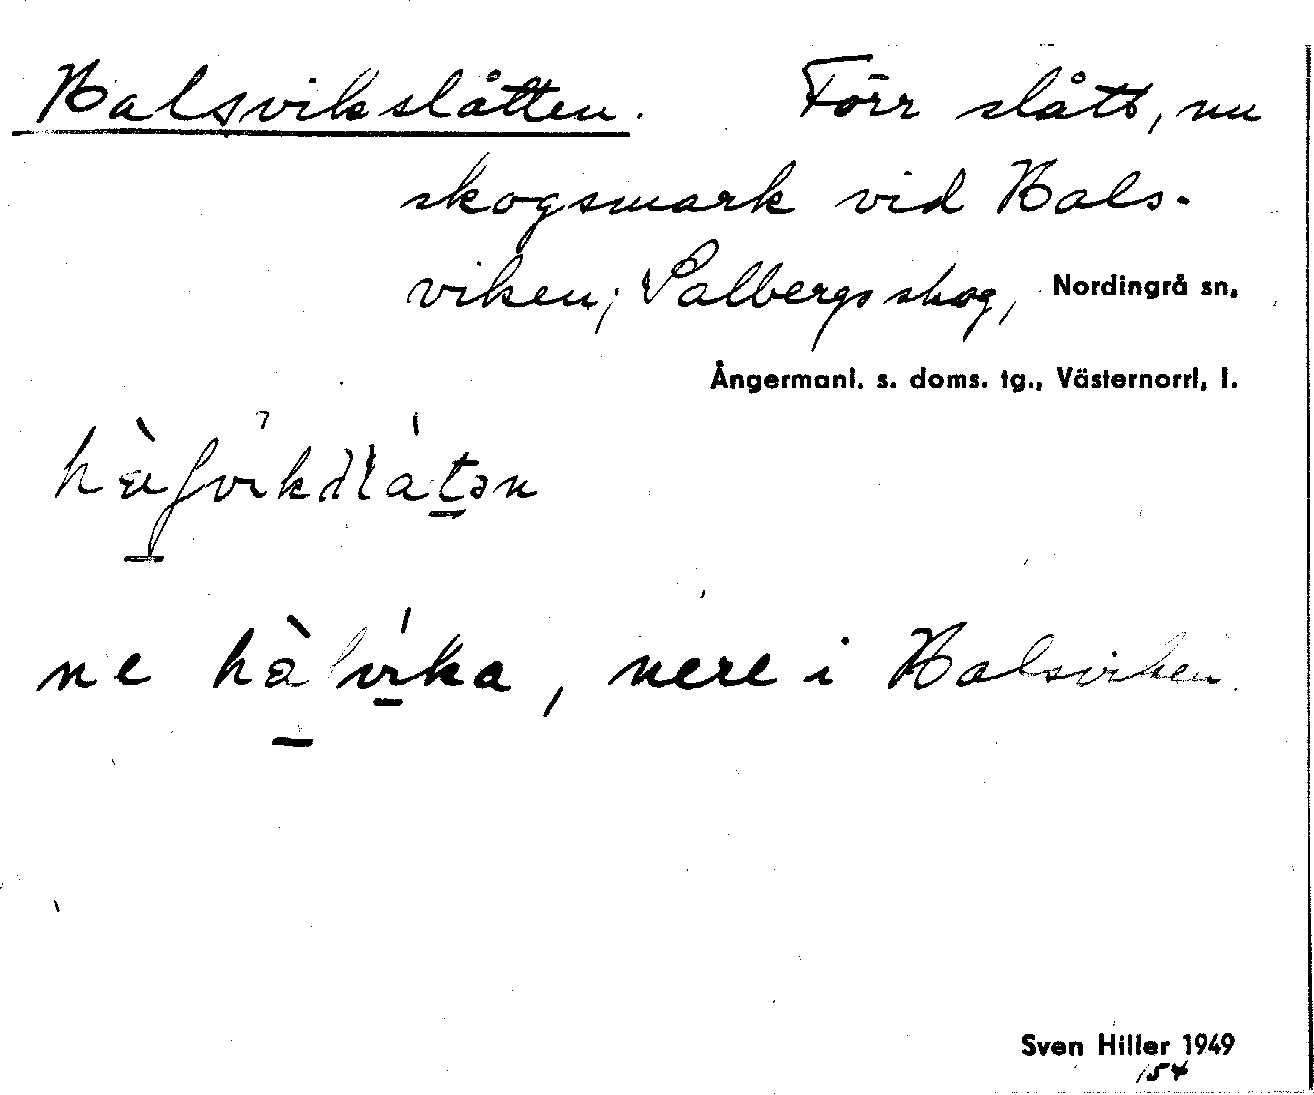 Halsvikslåtten. Förr slått, nu
skogsmark vid Hals-
viken; Salbergs skog, Nordingrå sn,
Ångermanl. s. doms. tg., Västernorrl, l.
ne , nere i Halsviken.
Sven Hiller 1949
154